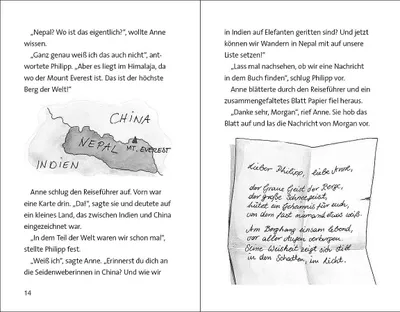 „Nepal? Wo ist das eigentlich?“, wollte Anne
wissen.
„Ganz genau weiß ich das auch nicht“, ant-
wortete Philipp. „Aber es liegt im Himalaja, da
wo der Mount Everest ist. Das ist der höchste
Berg der Welt!“
CHINA
NEPAL
MT. EVEREST
INDIEN
Anne schlug den Reiseführer auf. Vorn war
eine Karte drin. „Da!“, sagte sie und deutete auf
ein kleines Land, das zwischen Indien und China
eingezeichnet war.
„In dem Teil der Welt waren wir schon mal“,
stellte Philipp fest.
„Weiß ich“, sagte Anne. „Erinnerst du dich an
die Seidenweberinnen in China? Und wie wir
14
in Indien auf Elefanten geritten sind? Und jetzt
können wir Wandern in Nepal mit auf unsere
Liste setzen!“
„Lass mal nachsehen, ob wir eine Nachricht
in dem Buch finden“, schlug Philipp vor.
Anne blätterte durch den Reiseführer und ein
zusammengefaltetes Blatt Papier fiel heraus.
„Danke sehr, Morgan“, rief Anne. Sie hob das
Blatt auf und las die Nachricht von Morgan vor.
Lieber Philipp, liebe Anne,
der Graue Geist der Berge,
der große Schneepelz,
hütet ein Geheimnis für uns,
von dem fast niemand etwas weiß.
Am Berghang einsam lebend,
vor aller Augen verborgen.
Seine Weisheit zeigt sich still
in den Schatten, im Licht.